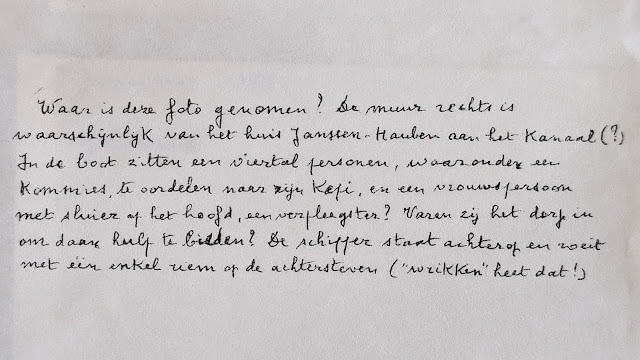 Waar is deze foto genomen? De muur rechts is
waarschijnlijk van het huis Janssen-Hauben aan het Kanaal (?)
In de boot zitten een viertal personen, waaronder een
Kommies, te oordelen naar zijn Kepi, en een vrouwspersoon
met sluier op het hoofd, een verpleegster? Varen zij het dorp in
om daar hulp te bieden? De schipper staat achterop en roeit
met één enkel riem op de achtersteven ("wrikken" heet dat!)